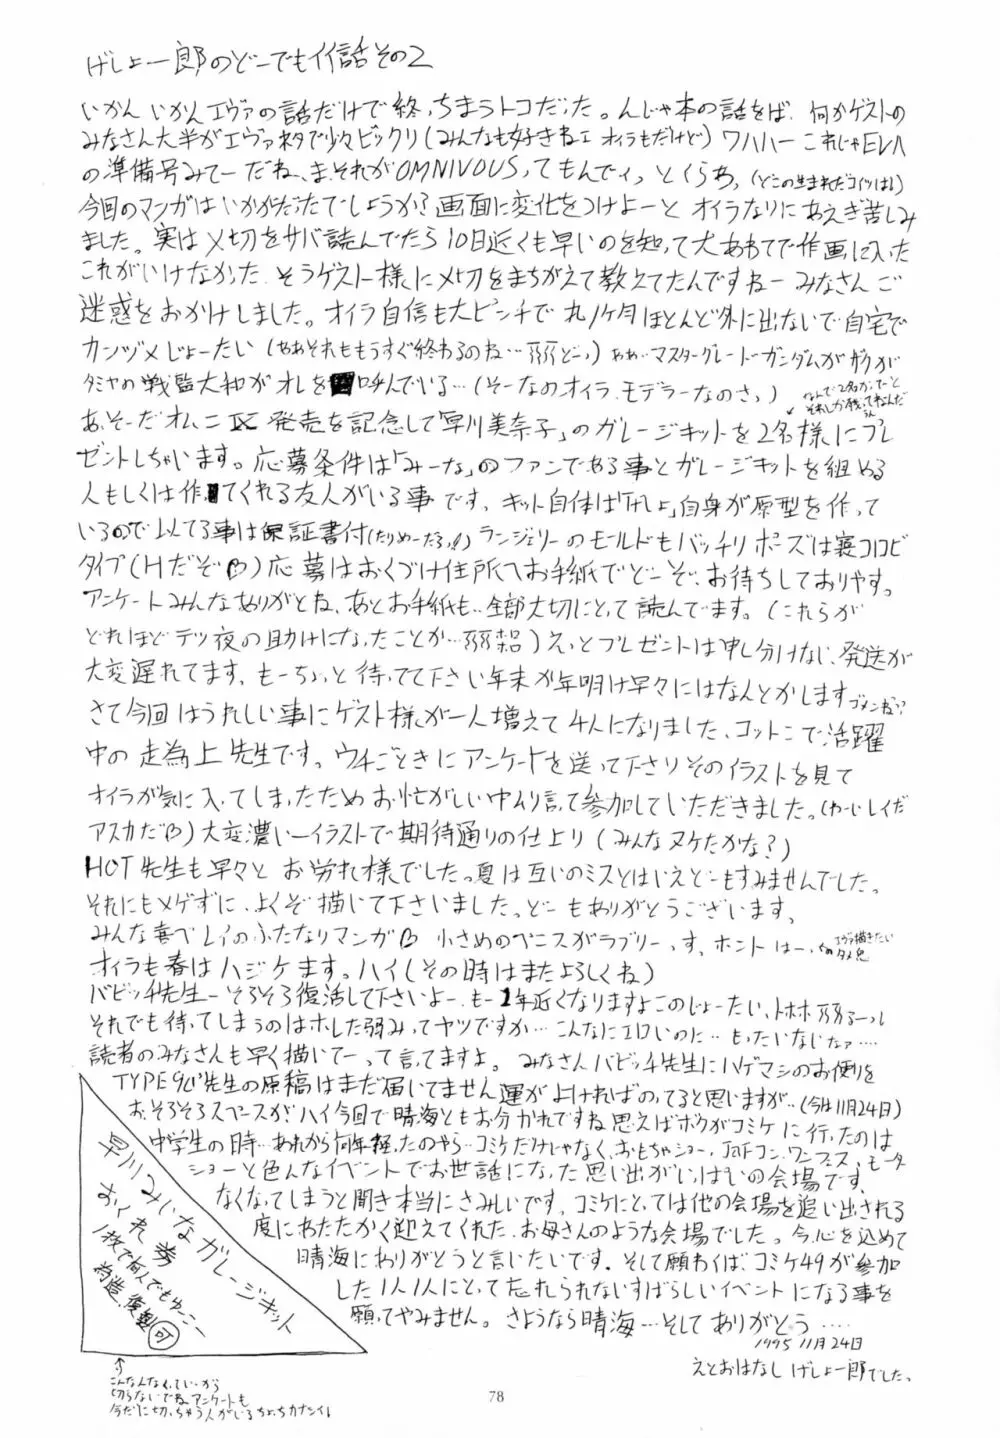 げしょ一郎のどーでもイイ話その2
いかんいかんエヴァの話だけで終っちまうトコだった。んじゃ本の話をば、何かゲストの
みなさん大半がエヴァネタで少々ビックリ(みんなも好きねェオイラもだけど)ワハハー これじゃEVA
の準備号みてーだね、まそれがOMNIVOUSってもんでィっとくらぁ、(どこの生まれだコイツは!)
今回のマンガはいかがだったでしょうか?画面に変化をつけよーとオイラなりにあえぎ苦しみ
ました。実は〆切をサバ読んでたら10日近くも早いのを知って大あわてで作画に入った
これがいけなかった、そうゲスト様に〆切をまちがえて教えてたんですねーみなさんご
迷惑をおかけしました。オイラ自信も大ピンチで丸1ケ月ほとんど外に出ないで自宅で
カンヅメじょーたい(ああそれももうすぐ終わるのね…
マスターグレードガンダムがガウガ
タミヤの戦艦大和がオレを呼んでいる…(そーなのオイラ、モデラーなのさっ)
なんで2名かってーと
それしか残ってねんだ
あ、そーだオムこIX発売を記念して「早川美奈子」のガレージキットを2名様にプレ
ゼントしちゃいます。応募条件は「みーな」のファンである事とガレージキットを組める
人もしくは作ってくれる友人がいる事です、キット自体は「げしょ」自身が原型を作って
いるので似てる事は保証書付(たりめーだろっ!)ランジェリーのモールドもバッチリポーズは寝コロビ
タイプ(Hだぞ)応募はおくづけ住所へお手紙でどーぞ、お待ちしておりやす。
アンケートみんなありがとね、あとお手紙も…全部大切にとって読んでます。(これらが
どれほどテツ夜の助けになったことか…
えっとプレゼントは申し分けない、発送が
大変遅れてます、もーちょっと待ってて下さい年末か年明け早々にはなんとかしますゴメンね??
さて今回はうれしい事にゲスト様が一人増えて4人になりました、コットンこで活躍
中の走為上先生です。ウチごときにアンケートを送って下さりそのイラストを見て
オイラが気に入ってしまったためお忙がしい中ムリ言って参加していただきました。(わーいレイだ
アスカだ)大変濃いーイラストで期待通りの仕上り(みんなヌケたかな?)
HOT先生も早々とお労れ様でした。夏は互いのミスとはいえどーもすみませんでした。
それにもメゲずに、よくぞ描いて下さいました。どーもありがとうございます。
みんな喜べレイのふたなりマンガ 小さめのペニスがラブリーっす。ホント は…
エヴァ描きたい
オイラも春はハジケます。ハイ(その時はまたよろしくね)
バビッチ先生ーそろそろ復活して下さいよー、もー1年近くなりますよこのじょーたい、トホホ
それでも待ってしまうのはホレた弱みってヤツですか…こんなにエロいのに…もったいないなァ….
読者のみなさんも早く描いてーって言ってますよ。みなさんバビッチ先生にハゲマシのお便りを
TYPE90先生の原稿はまだ届いてません運がよければのってると思いますが…(今は11月24日)
おっそろそろスペースが、ハイ今回で晴海ともお分かれですね思えばボクがコミケに行ったのは
中学生の時…あれから何年経ったのやら…コミケだけじゃなく、おもちゃショー、JAFコン、ワンフェス、モータ
ショーと色んなイベントでお世話になった思い出がいっぱいの会場です、
なくなってしまうと聞き本当にさみしいです。コミケにとっては他の会場を追い出される
度にあたたかく迎えてくれた、お母さんのような会場でした。今、心を込めて
晴海にありがとうと言いたいです。そして願わくば、コミケ49が参加
した1人1人にとって忘れられないすばらしいイベントになる事を
願ってやみません。さようなら晴海…そしてありがとう….
1995 11月24日
えとおはなし げしょ一郎でした。
早川みいなガレージキット
おくれ券
1枚で何んでもゆーこー
偽造、複製可
こんなんなくっていいから
切らないでね、アンケートも
今だに切っちゃう人がいるちょっちカナシイ!
78